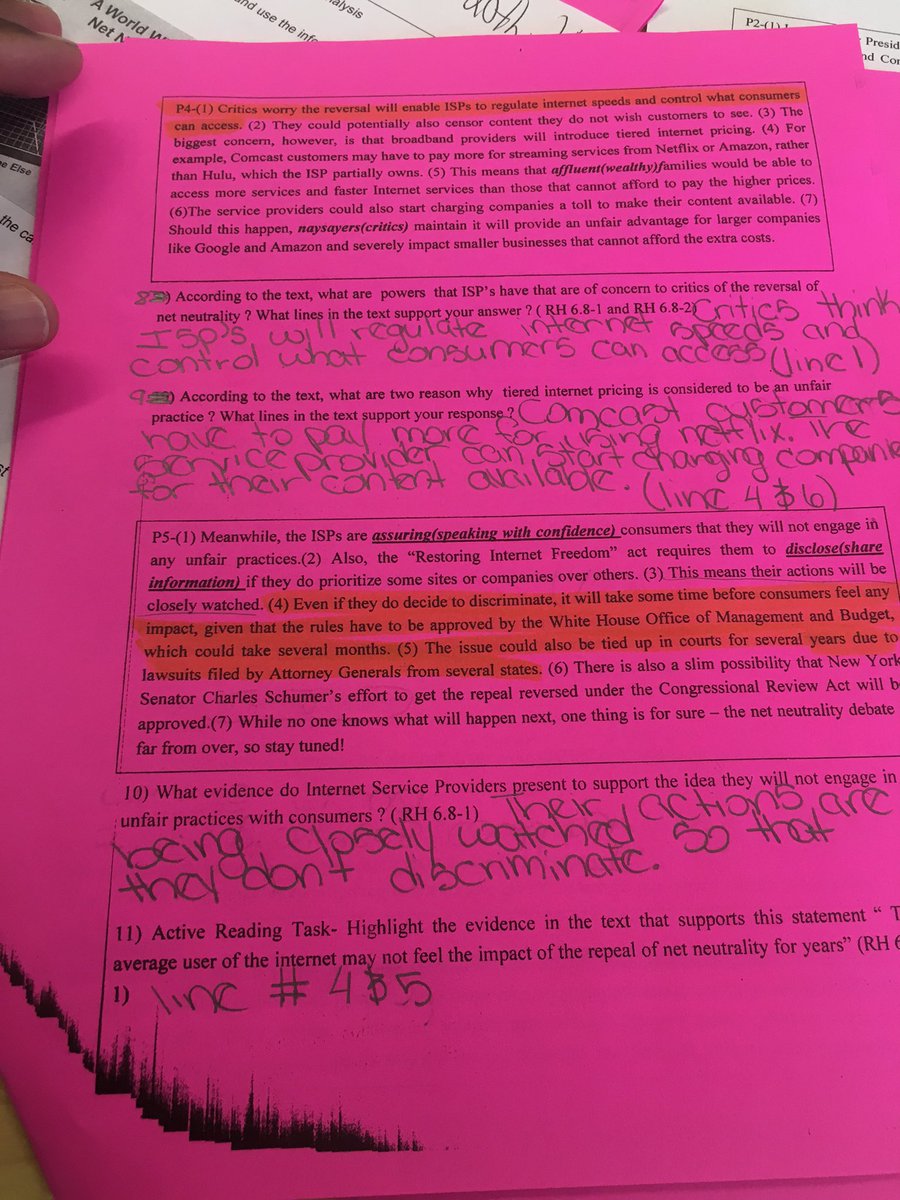 A World W
Net N
nd use the info
alysis
P2-(1)
Presid
nd Con
e Else
the ca
P4-(1) Critics worry the reversal will enable ISPs to regulate internet speeds and control what consumers
can access. (2) They could potentially also censor content they do not wish customers to see. (3) The
biggest concern, however, is that broadband providers will introduce tiered internet pricing. (4) For
example, Comcast customers may have to pay more for streaming services from Netflix or Amazon, rather
than Hulu, which the ISP partially owns. (5) This means that affluent(wealthy)families would be able to
access more services and faster Internet services than those that cannot afford to pay the higher prices.
(6)The service providers could also start charging companies a toll to make their content available. (7)
Should this happen, naysayers(critics) maintain it will provide an unfair advantage for larger companies
like Google and Amazon and severely impact smaller businesses that cannot afford the extra costs.
8) According to the text, what are powers that ISP's have that are of concern to critics of the reversal of
net neutrality ? What lines in the text support your answer ? ( RH 6.8-1 and RH 6.8-2) Critics think
ISP's will regulate internet speeds and
control what consumers can access (line 1)
9) According to the text, what are two reason why tiered internet pricing is considered to be an unfair
practice ? What lines in the text support your response ? Comcast customers
have to pay more for using netflix. The
service provider can start changing companie
for their content available. (line 4 $ 6)
P5-(1) Meanwhile, the ISPs are assuring(speaking with confidence) consumers that they will not engage in
any unfair practices.(2) Also, the “Restoring Internet Freedom” act requires them to disclose(share
information) if they do prioritize some sites or companies over others. (3) This means their actions will be
closely watched. (4) Even if they do decide to discriminate, it will take some time before consumers feel any
impact, given that the rules have to be approved by the White House Office of Management and Budget,
which could take several months. (5) The issue could also be tied up in courts for several years due to
lawsuits filed by Attorney Generals from several states. (6) There is also a slim possibility that New York
Senator Charles Schumer’s effort to get the repeal reversed under the Congressional Review Act will b
approved.(7) While no one knows what will happen next, one thing is for sure – the net neutrality debate
far from over, so stay tuned!
10) What evidence do Internet Service Providers present to support the idea they will not engage in
unfair practices with consumers ? ( RH 6.8-1) Their actions are
being closely watched so that
they don't discriminate.
11) Active Reading Task- Highlight the evidence in the text that supports this statement “ T
average user of the internet may not feel the impact of the repeal of net neutrality for years” (RH 6
1) line # 4 $ 5